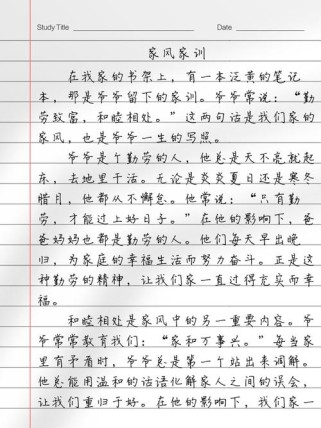 Study Title Date
家风家训
在我家的书架上，有一本泛黄的笔记
本，那是爷爷留下的家训。爷爷常说：“勤
劳致富，和睦相处。”这两句话是我们家的
家风，也是爷爷一生的写照。
爷爷是个勤劳的人，他总是天不亮就起
床，去地里干活。无论是炎炎夏日还是寒冬
腊月，他都从不懈怠。他常说：“只有勤
劳，才能过上好日子。”在他的影响下，爸
爸妈妈也都是勤劳的人。他们每天早出晚
归，为家庭的幸福生活而努力奋斗。正是这
种勤劳的精神，让我们家一直过得充实而幸
福。
和睦相处是家风中的另一重要内容。爷
爷常常教育我们：“家和万事兴。”每当家
里有矛盾时，爷爷总是第一个站出来调解。
他总能用温和的话语化解家人之间的误会，
让我们重归于好。在他的影响下，我们家一